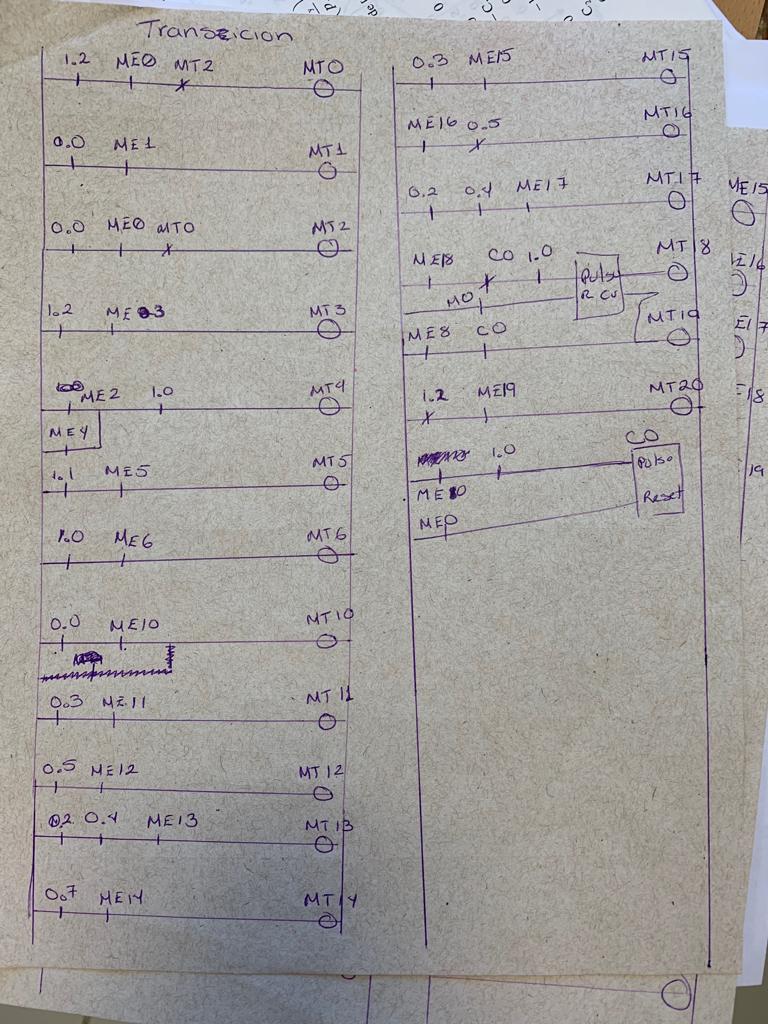 Transicion
1.2 ME0 MT2 MT0
0.0 ME1 MT1
0.0 ME0 MT0 MT2
1.2 ME 3 MT3
ME2 1.0 MT4
ME4
1.1 ME5 MT5
1.0 ME6 MT6
0.0 ME10 MT10
0.3 ME11 MT11
0.5 ME12 MT12
0.2 0.4 ME13 MT13
0.7 ME14 MT14
0.3 ME15 MT15
ME16 0.5 MT16
0.2 0.4 ME17 MT17
ME18 C0 1.0 Pulse MT18
M0 R CU
ME8 C0 MT19
1.2 ME19 MT20
1.0 C0
Pulso
ME10 Reset
ME0
ME15
E16
E17
18
19